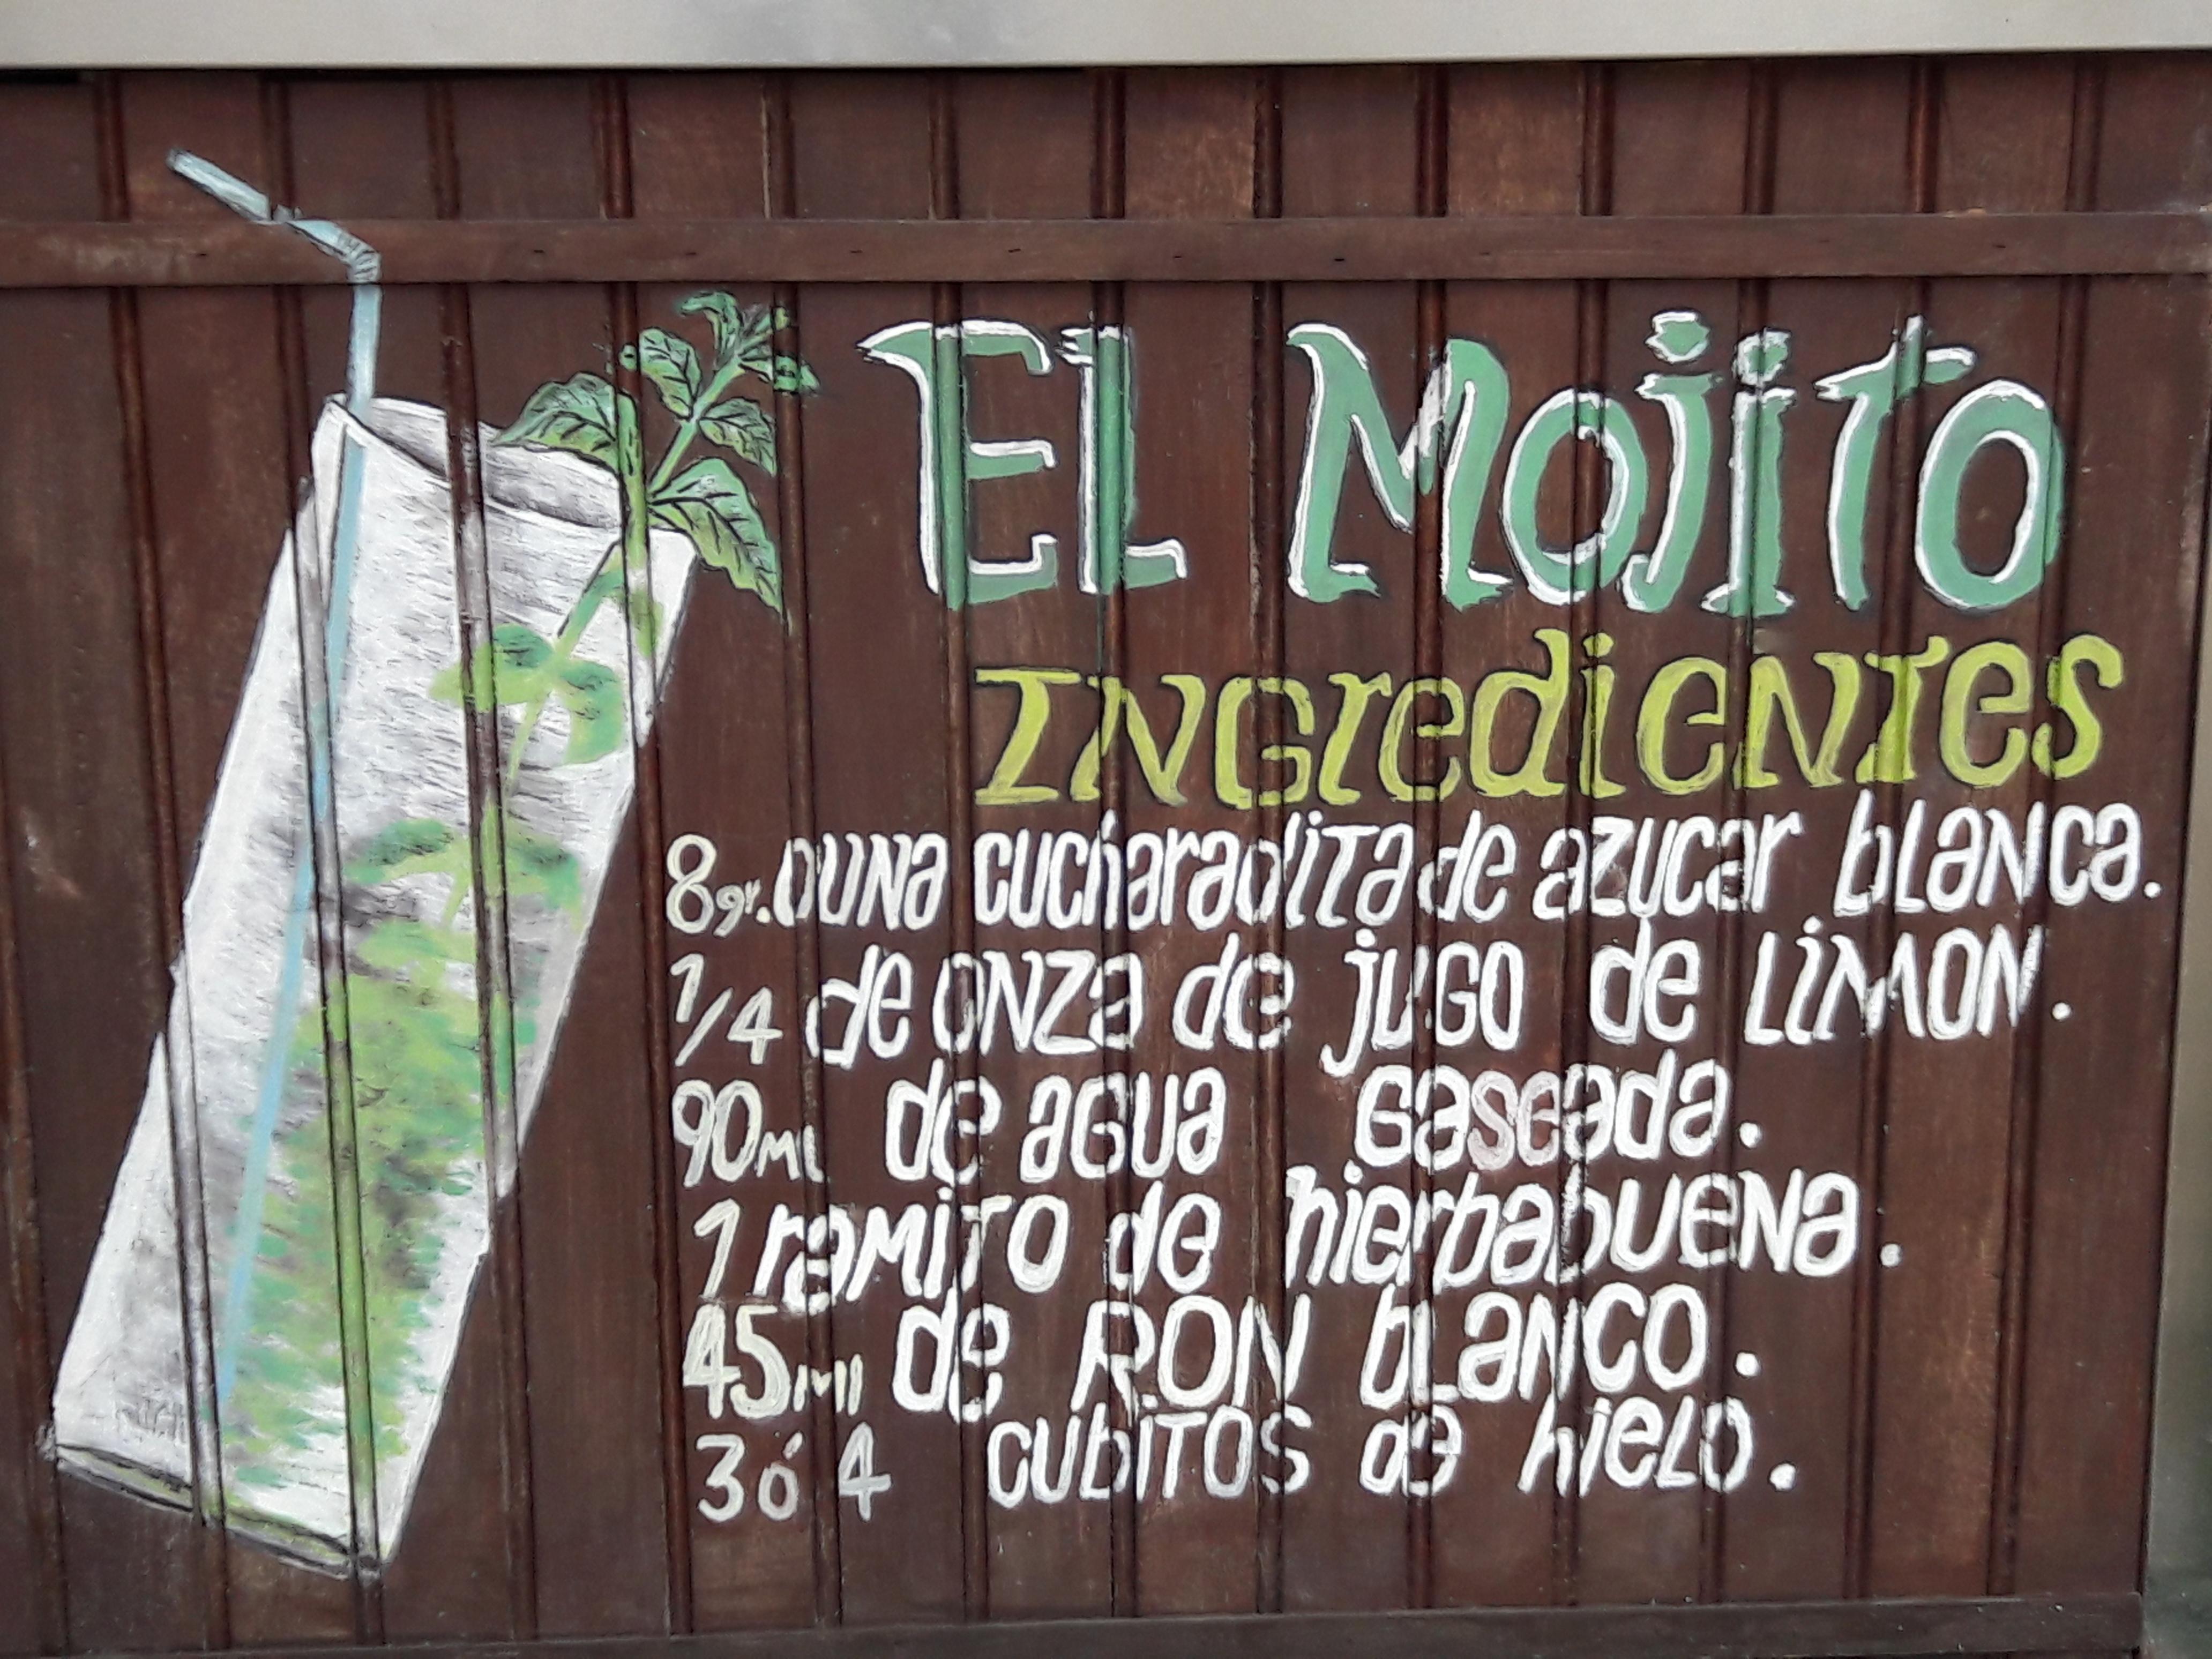 EL Mojito
INGredieNTes
8gr. o UNa cucharadita de azucar blaNca.
1/4 de ONZa de juGO de LiMON.
90ml de aGUa Gaseada.
1 raMiTO de hierbabUeNa.
45ml de RON blaNCO.
3 ó 4 cubiTOS de hieLO.